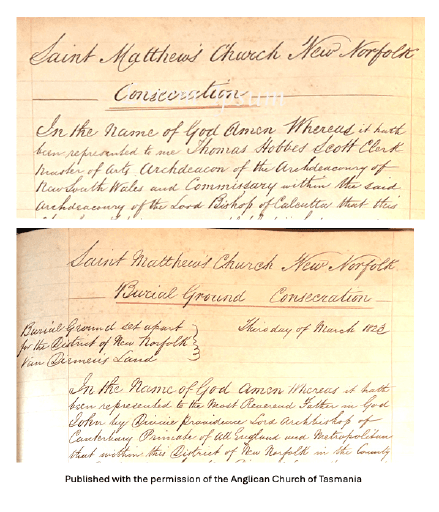 Saint Matthew's Church New Norfolk
Consecration
In the Name of God Amen Whereas it hath
been represented to me Thomas Hobbes Scott Clerk
Master of Arts Archdeacon of the Archdeaconry of
New South Wales and Commissary within the said
Archdeaconry of the Lord Bishop of Calcutta that this
Saint Matthew's Church New Norfolk
Burial Ground Consecration
Burial Ground set apart
for the District of New Norfolk
Van Diemens Land
Thirdday of March
In the Name of God Amen Whereas it hath
been represented to the Most Reverend Father in God
John by Divine providence Lord Archbishop of
Canterbury Primate of All England and Metropolitan
that within this District of New Norfolk in the County
Published with the permission of the Anglican Church of Tasmania